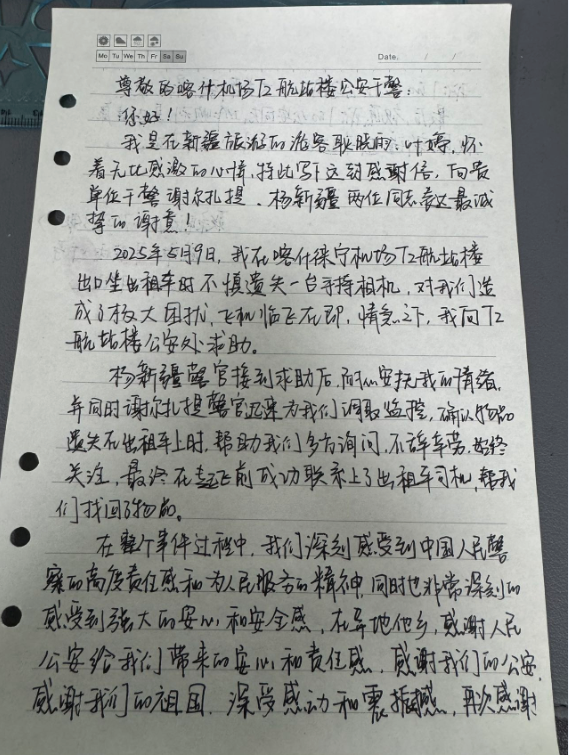 Mo Tu We Th Fr Sa Su
Date. / /
尊敬的喀什机场T2航站楼公安干警：
你好！
我是在新疆旅游的游客耿晓雨、叶婷，怀
着无比感激的心情，特此写下这封感谢信，向贵
单位干警谢尔扎提、杨新疆两位同志表达最诚
挚的谢意！
2025年5月9日，我在喀什徕宁机场T2航站楼
出口坐出租车时不慎遗失一台手持相机，对我们造
成了极大困扰，飞机临飞在即，情急之下，我向T2
航站楼公安处求助。
杨新疆警官接到求助后，耐心安抚我的情绪，
并同时谢尔扎提警官迅速为我们调取监控，确认物品
遗失在出租车上时，帮助我们多方询问，不辞辛劳，始终
关注，最终在起飞前成功联系上了出租车司机，帮我
们找回了物品。
在整个事件过程中，我们深刻感受到中国人民警
察的高度责任感和为人民服务的精神，同时也非常深刻的
感受到强大的安心和安全感，在异地他乡，感谢人民
公安给我们带来的安心和责任感，感谢我们的公安，
感谢我们的祖国，深受感动和震撼感，再次感谢